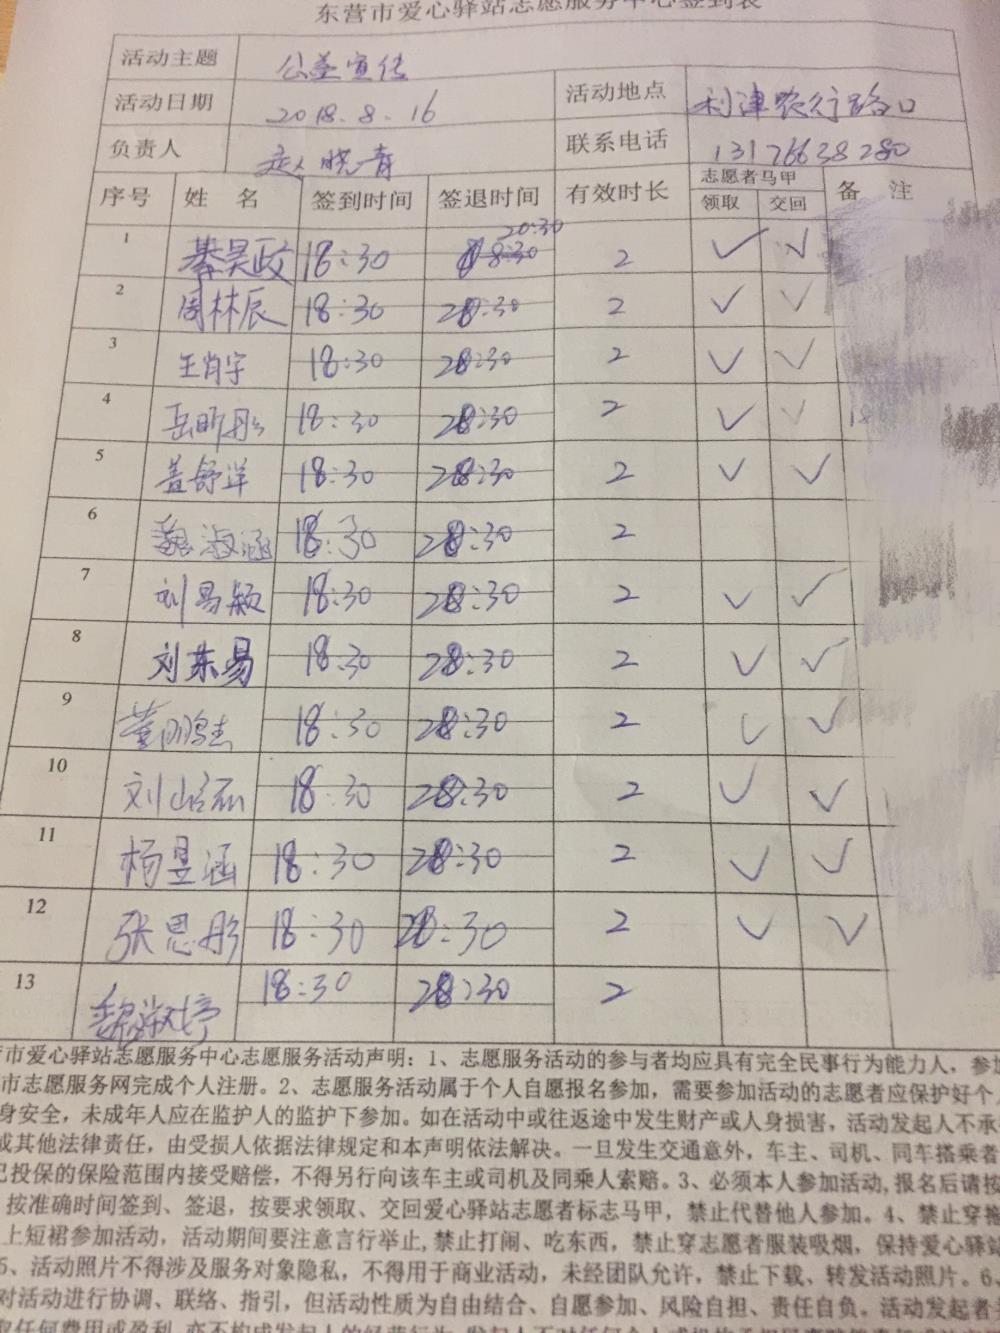 东营市爱心驿站志愿服务中心签到表
活动主题 公益宣传
活动日期 2018.8.16 活动地点 利津农行路口
负责人 赵晓青 联系电话 13176638280
序号 姓 名 签到时间 签退时间 有效时长 志愿者马甲 备 注
领取 交回
1 綦昊政 18:30 20:30 2 ✓ ✓
2 周林辰 18:30 20:30 2 ✓ ✓
3 王肖宇 18:30 20:30 2 ✓ ✓
4 岳昕彤 18:30 20:30 2 ✓ ✓
5 盖舒洋 18:30 20:30 2 ✓ ✓
6 魏淑涵 18:30 20:30 2
7 刘易颖 18:30 20:30 2 ✓ ✓
8 刘东易 18:30 20:30 2 ✓ ✓
9 董鹏志 18:30 20:30 2 ✓ ✓
10 刘 18:30 20:30 2 ✓ ✓
11 杨昱涵 18:30 20:30 2 ✓ ✓
12 张思彤 18:30 20:30 2 ✓ ✓
13 魏淑婷 18:30 20:30 2
营市爱心驿站志愿服务中心志愿服务活动声明：1、志愿服务活动的参与者均应具有完全民事行为能力人，参加
市志愿服务网完成个人注册。2、志愿服务活动属于个人自愿报名参加，需要参加活动的志愿者应保护好个人
身安全，未成年人应在监护人的监护下参加。如在活动中或往返途中发生财产或人身损害，活动发起人不承
或其他法律责任，由受损人依据法律规定和本声明依法解决。一旦发生交通意外，车主、司机、同车搭乘者
已投保的保险范围内接受赔偿，不得另行向该车主或司机及同乘人索赔。3、必须本人参加活动,报名后请按
按准确时间签到、签退，按要求领取、交回爱心驿站志愿者标志马甲，禁止代替他人参加。4、禁止穿拖
上短裙参加活动，活动期间要注意言行举止,禁止打闹、吃东西，禁止穿志愿者服装吸烟，保持爱心驿站
5、活动照片不得涉及服务对象隐私，不得用于商业活动，未经团队允许，禁止下载、转发活动照片。6、
对活动进行协调、联络、指引，但活动性质为自由结合、自愿参加、风险自担、责任自负。活动发起者
取任何费用或盈利